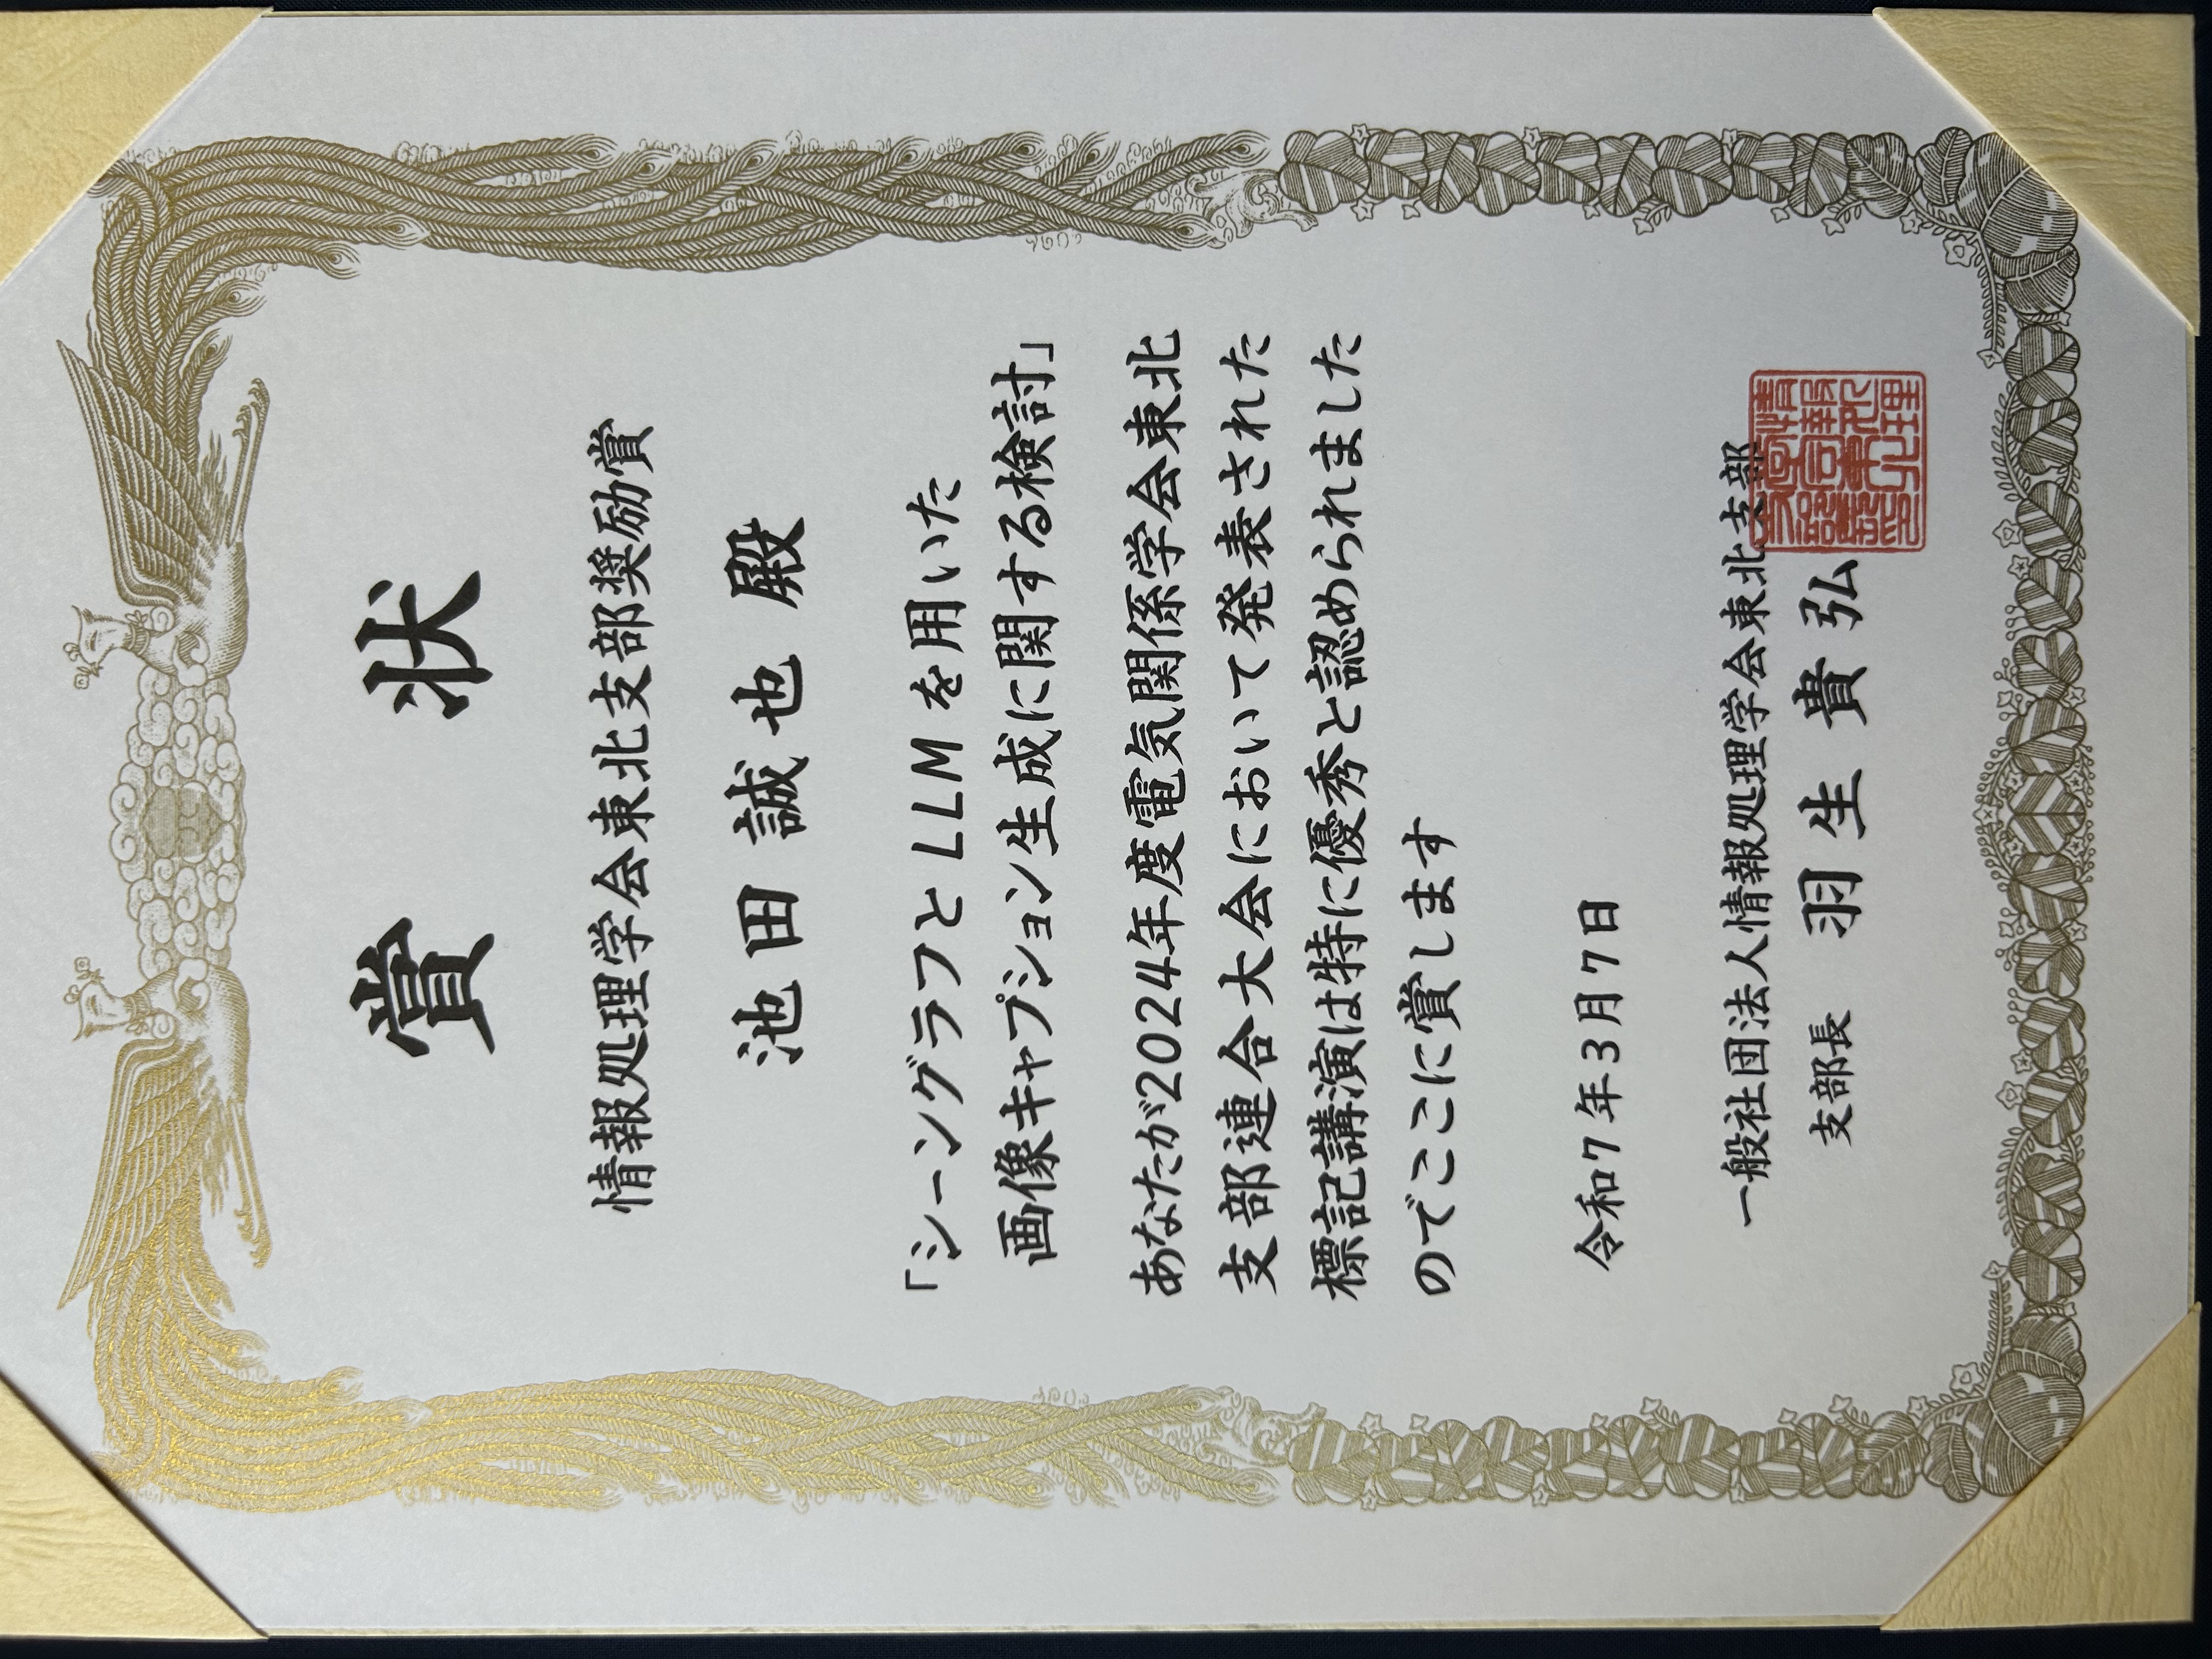 賞状
情報処理学会東北支部奨励賞
池田誠也殿
「シーングラフとLLMを用いた
画像キャプション生成に関する検討」
あなたが2024年度電気関係学会東北
支部連合大会において発表された
標記講演は特に優秀と認められました
のでここに賞します
令和7年3月7日
一般社団法人情報処理学会東北支部
支部長 羽生貴弘